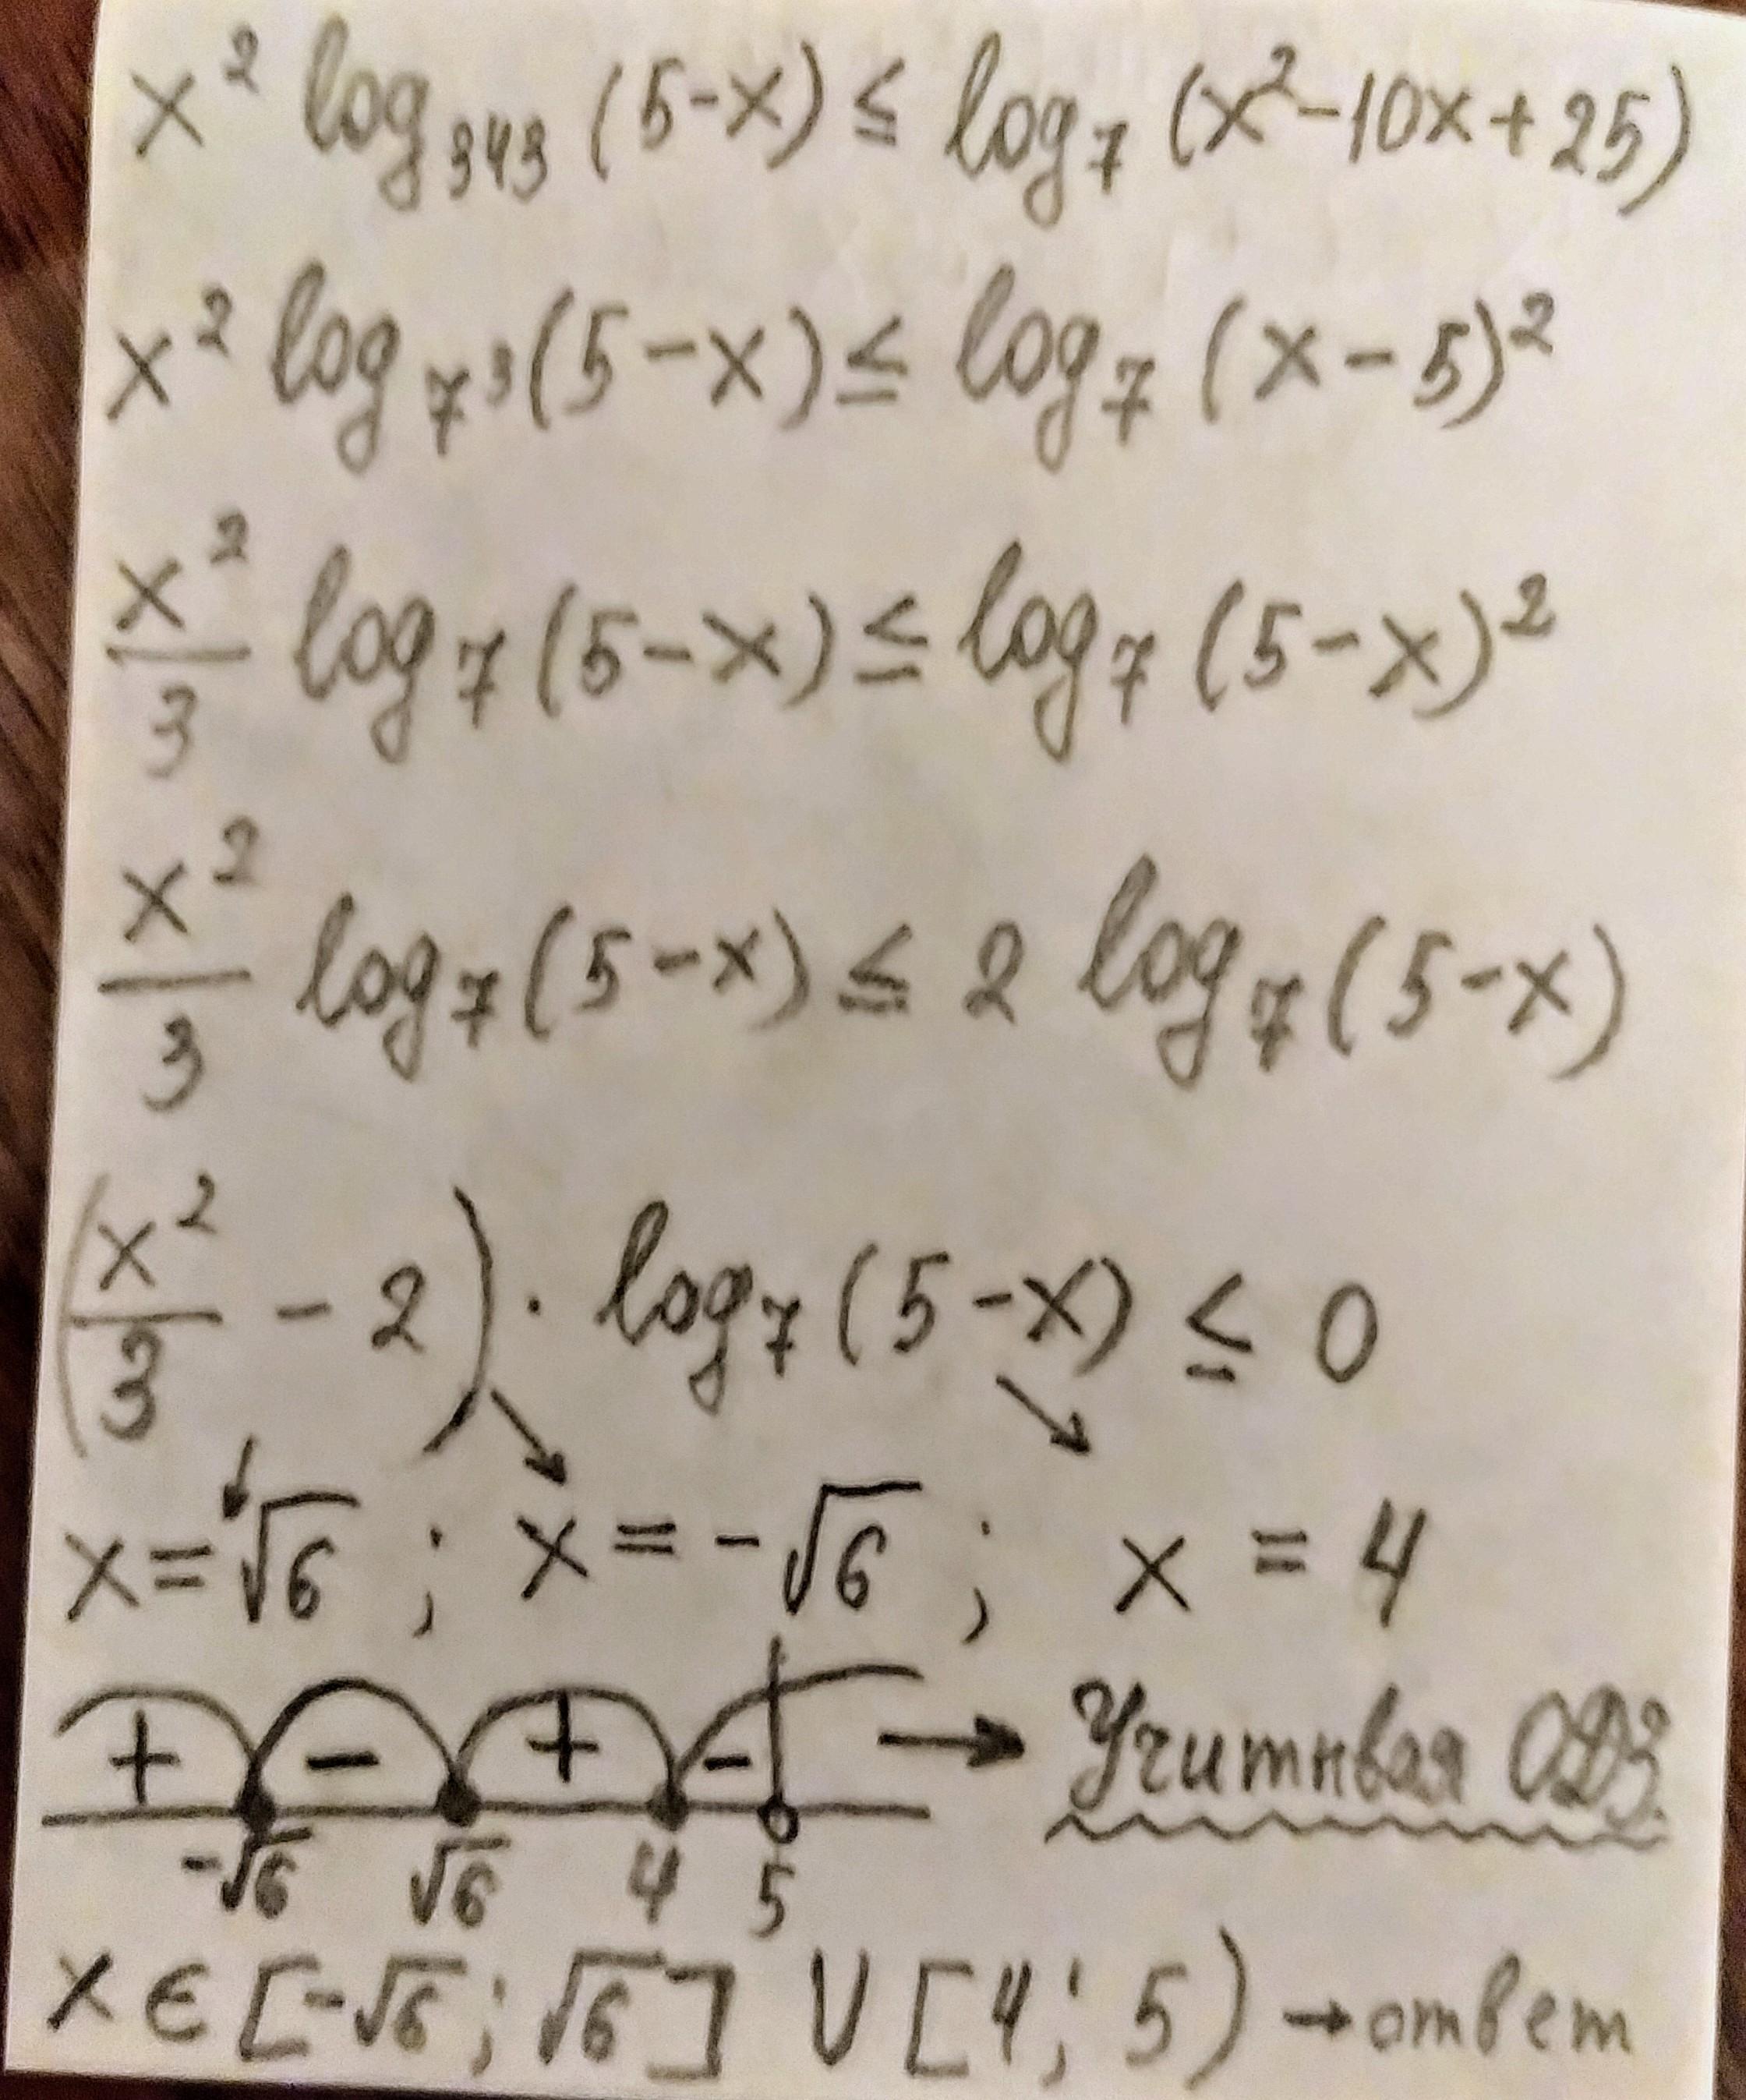 x² log₃₄₃ (5-x) ≤ log₇ (x²-10x+25)
x² log₇³ (5-x) ≤ log₇ (x-5)²
x²/3 log₇ (5-x) ≤ log₇ (5-x)²
x²/3 log₇ (5-x) ≤ 2 log₇ (5-x)
(x²/3 - 2) · log₇ (5-x) ≤ 0
x=√6 ; x=-√6 ; x=4
+ - + - → Учитывая ОДЗ
-√6 √6 4 5
x∈[-√6; √6] ∪ [4; 5) → ответ